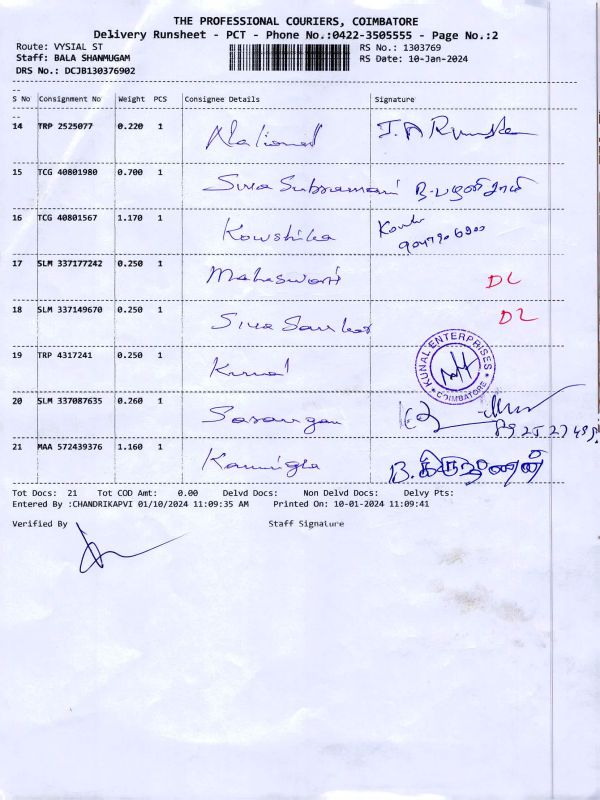 THE PROFESSIONAL COURIERS, COIMBATORE
Delivery Runsheet - PCT - Phone No.:0422-3505555 - Page No.:2
Route: VYSIAL ST RS No.: 1303769
Staff: BALA SHANMUGAM RS Date: 10-Jan-2024
DRS No.: DCJB130376902
S No Consignment No Weight PCS Consignee Details Signature
14 TRP 2525077 0.220 1 National
15 TCG 40801980 0.700 1 Siva Subramani
16 TCG 40801567 1.170 1 Kowshika
17 SLM 337177242 0.250 1 Maheswari DL
18 SLM 337149670 0.250 1 Siva Sankar DL
19 TRP 4317241 0.250 1 Kunal KUNAL ENTERPRISES * COIMBATORE *
20 SLM 337087635 0.260 1
21 MAA 572439376 1.160 1
Tot Docs: 21 Tot COD Amt: 0.00 Delvd Docs: Non Delvd Docs: Delvy Pts:
Entered By :CHANDRIKAPVI 01/10/2024 11:09:35 AM Printed On: 10-01-2024 11:09:41
Verified By Staff Signature